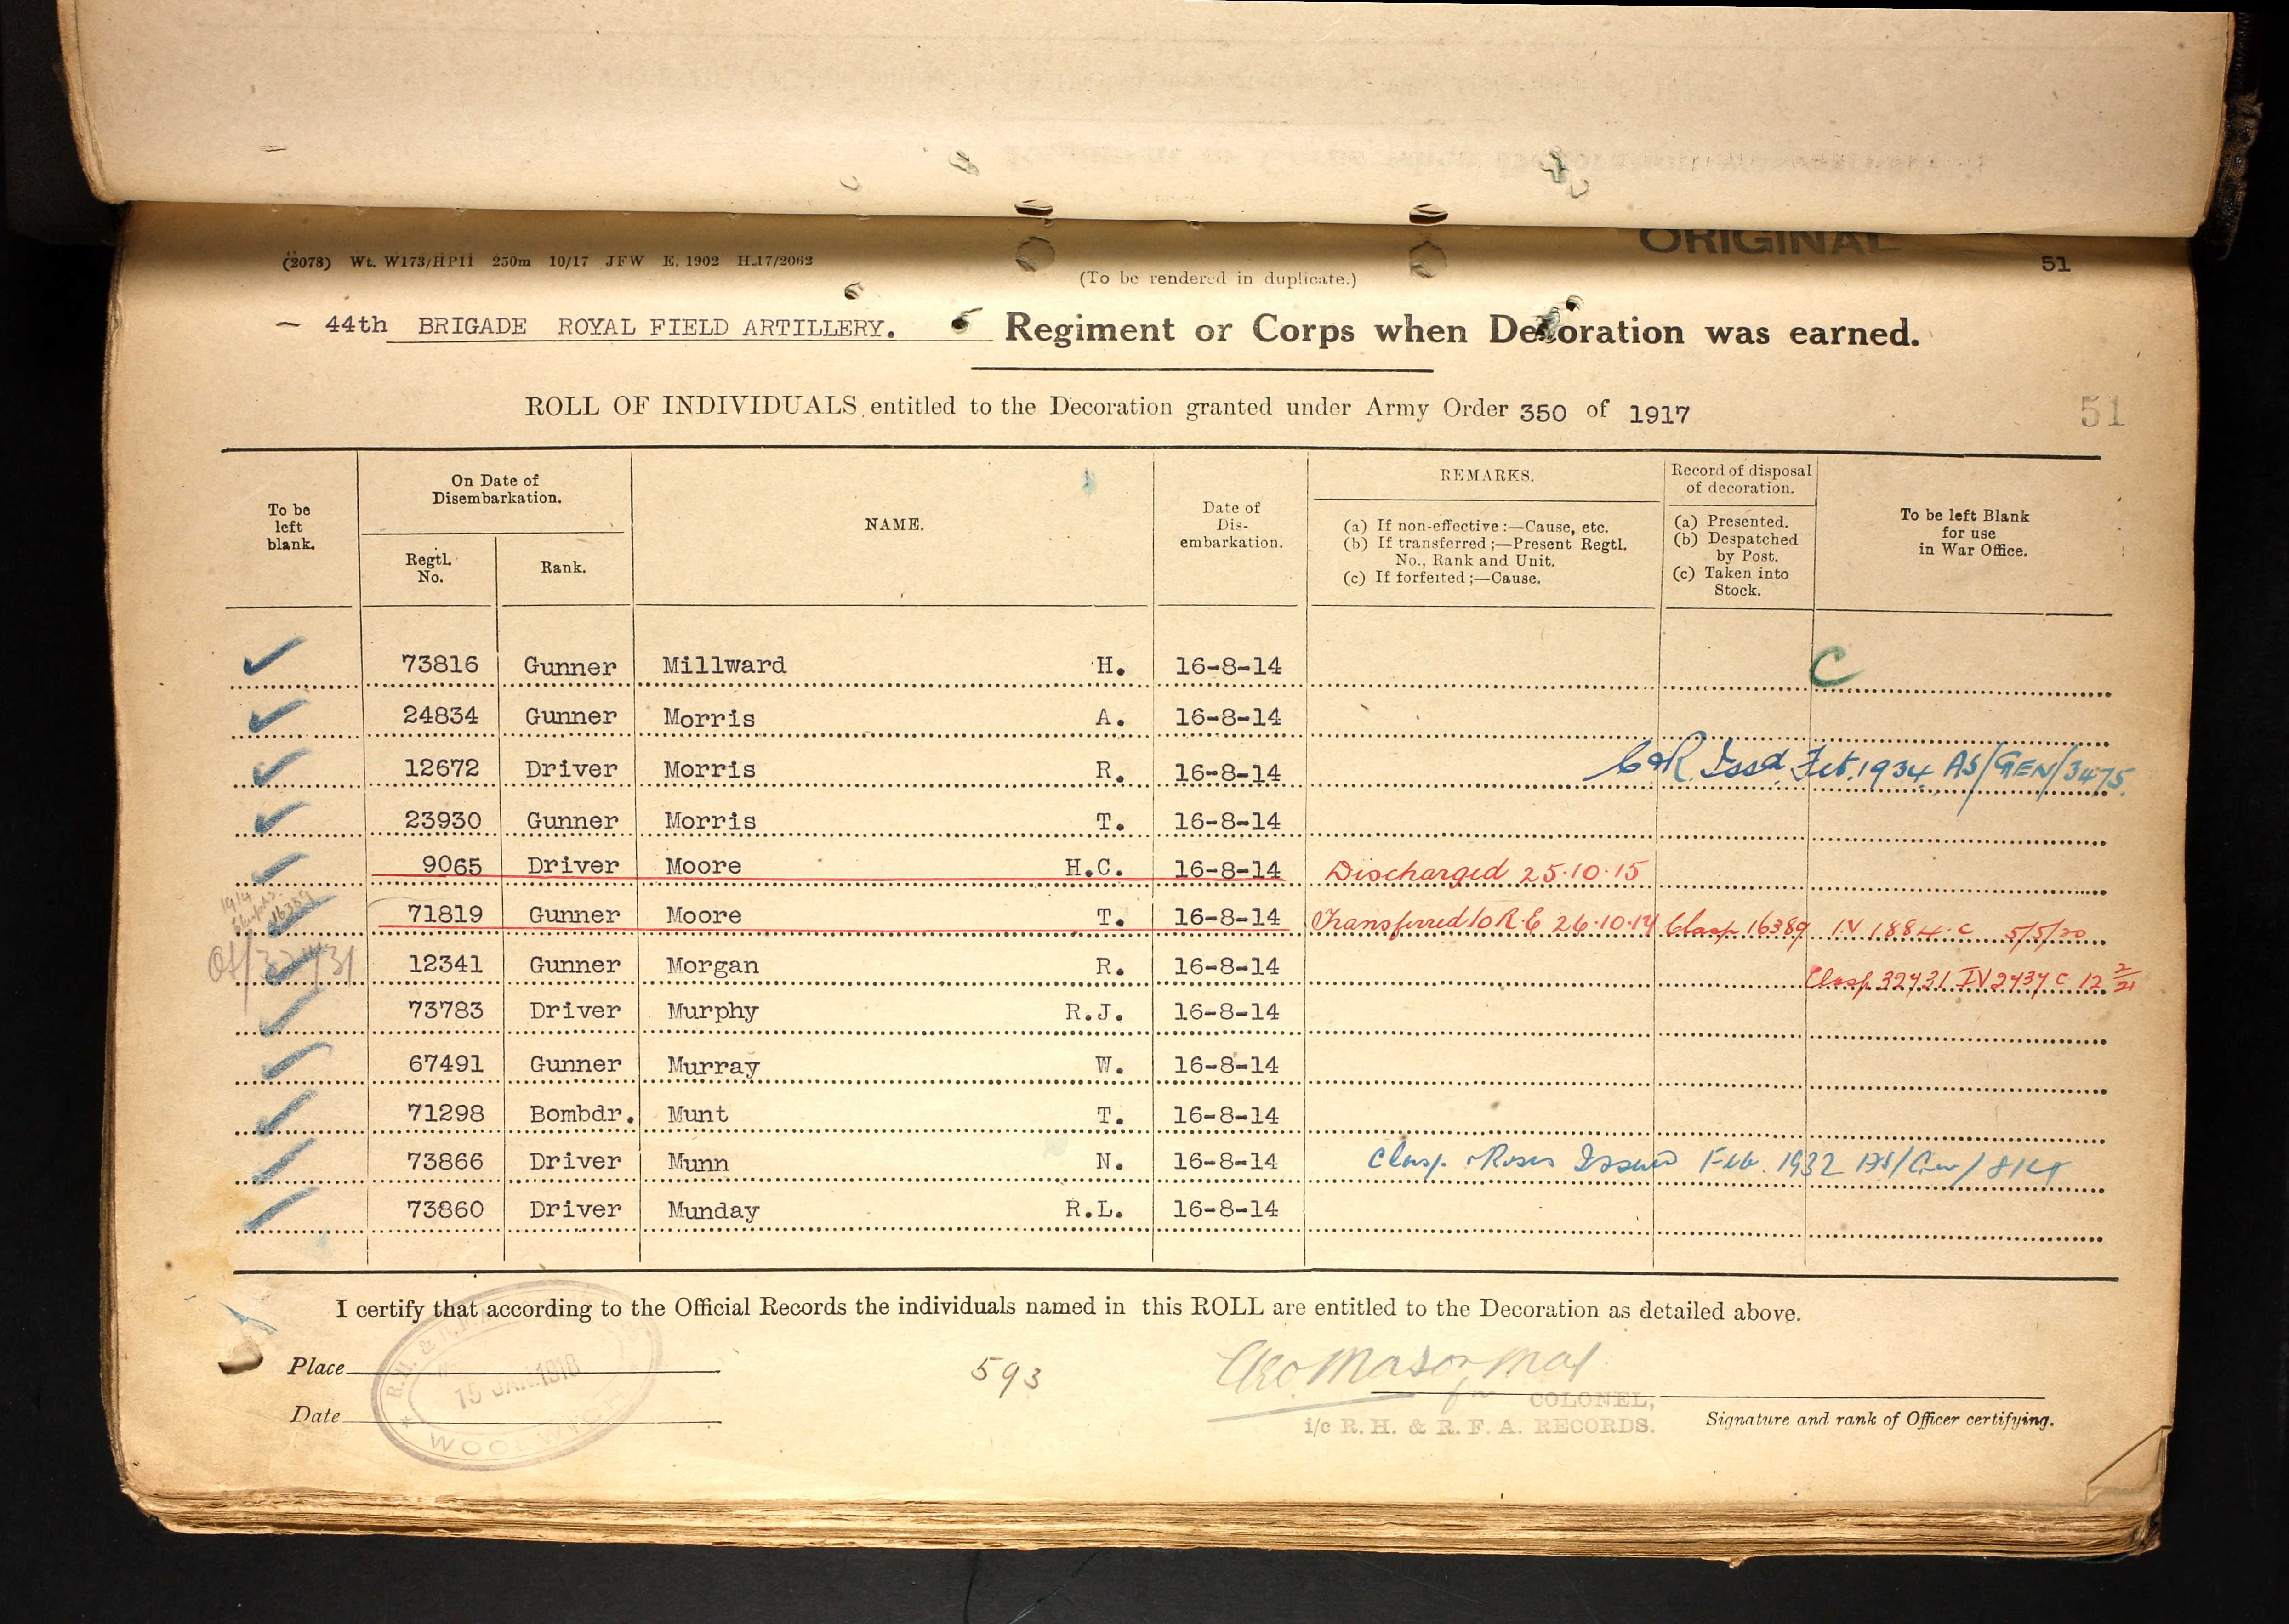 ORIGINAL
(2078) Wt. W173/HP11 250m 10/17 JFW E. 1902 H.17/2062
51
(To be rendered in duplicate.)
44th BRIGADE ROYAL FIELD ARTILLERY. Regiment or Corps when Decoration was earned.
ROLL OF INDIVIDUALS entitled to the Decoration granted under Army Order 350 of 1917
51
To be left blank.
On Date of Disembarkation.
Regtl. No.
Rank.
NAME.
Date of Dis-embarkation.
REMARKS.
(a) If non-effective :—Cause, etc.
(b) If transferred ;—Present Regtl. No., Rank and Unit.
(c) If forfeited ;—Cause.
Record of disposal of decoration.
(a) Presented.
(b) Despatched by Post.
(c) Taken into Stock.
To be left Blank for use in War Office.
73816 Gunner Millward H. 16-8-14 C
24834 Gunner Morris A. 16-8-14
12672 Driver Morris R. 16-8-14 C&R Issd Feb. 1934 AS/GEN/3475.
23930 Gunner Morris T. 16-8-14
9065 Driver Moore H.C. 16-8-14 Discharged 25.10.15
1914 16389
71819 Gunner Moore T. 16-8-14 Transferred to R.E 26.10.14 Clasp 16389 IV 1884.c 5/5/20
12341 Gunner Morgan R. 16-8-14 Clasp 32431 IV 2434 c 12 2/21
73783 Driver Murphy R.J. 16-8-14
67491 Gunner Murray W. 16-8-14
71298 Bombdr. Munt T. 16-8-14
73866 Driver Munn N. 16-8-14 Clasp & Roses Issued Feb. 1932
73860 Driver Munday R.L. 16-8-14
I certify that according to the Official Records the individuals named in this ROLL are entitled to the Decoration as detailed above.
Place
15 JAN 1918
WOOLWICH
593
Geo Mason Maj
for COLONEL,
i/c R. H. & R. F. A. RECORDS.
Date
Signature and rank of Officer certifying.